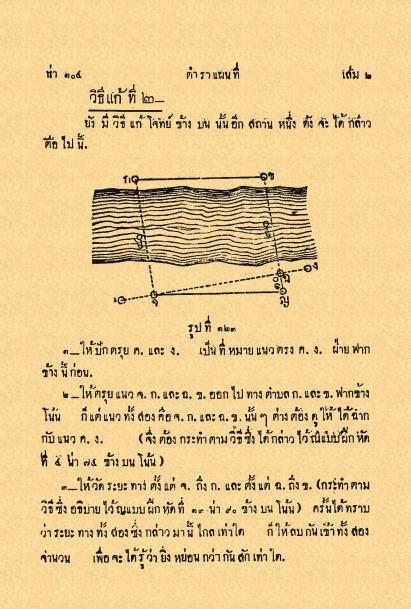 น่า ๑๐๕ ตำราแผนที่ เล่ม ๒
วิธีแก้ ที่ ๒—
ยัง มี วิธี แก้ โจทย์ ข้าง บน นั้น อีก สถาน หนึ่ง ดัง จะ ได้ กล่าว
ต่อ ไป นี้.
ก ข
ฉ ง
จ ญ
รูป ที่ ๑๒๓
๑— ให้ ปัก ตรุย ค. และ ง. เป็น ที่ หมาย แนว ตรง ค. ง. ฝ่าย ฟาก
ข้าง นี้ ก่อน.
๒— ให้ ตรุย แนว จ. ก. และ ฉ. ข. ออก ไป ทาง ตำบล ก. และ ข. ฟาก ข้าง
โน้น ก็ แต่ แนว ทั้ง สอง คือ จ. ก. และ ฉ. ข. นั้น ๆ ต่าง ต้อง ดู ให้ ได้ ฉาก
กับ แนว ค. ง. (จึ่ง ต้อง กระทำ ตาม วิธี ซึ่ง ได้ กล่าว ไว้ ณ แบบ ฝึก หัด
ที่ ๕ น่า ๗๕ ข้าง บน โน้น)
๓— ให้ วัด ระยะ ทาง ตั้ง แต่ จ. ถึง ก. และ ตั้ง แต่ ฉ. ถึง ข. (กระทำ ตาม
วิธี ซึ่ง อธิบาย ไว้ ณ แบบ ฝึก หัด ที่ น่า ๙๐ ข้าง บน โน้น) ครั้น ได้ ทราบ
ว่า ระยะ ทาง ทั้ง สอง ซึ่ง กล่าว มา นี้ ไกล เท่า ใด ก็ ให้ ลบ กัน เข้า ทั้ง สอง
จำนวน เพื่อ จะ ได้ รู้ ว่า ยิ่ง หย่อน กว่า กัน สัก เท่า ใด.